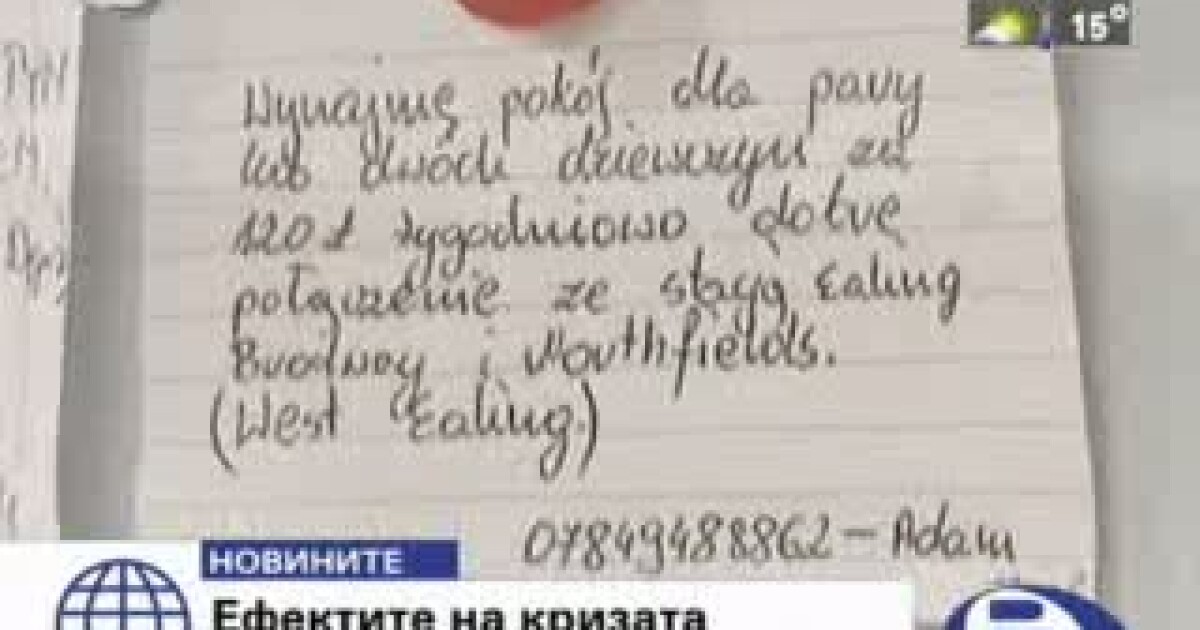 15°
Wynajmę pokój dla pary
lub dwóch dziewczyn za
120 £ tygodniowo dobre
połączenie ze stacją Ealing
Brodwey i Northfields.
(West Ealing)
07849488862 – Adam
НОВИНИТЕ
Ефектите на кризата